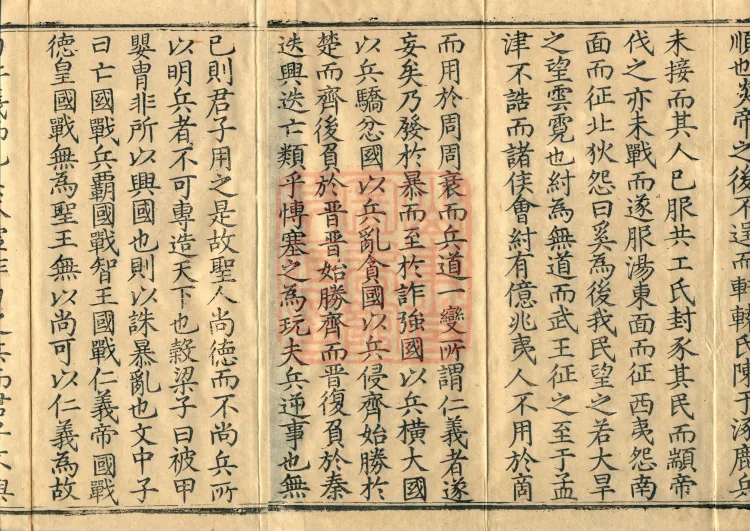 順也炎帝之後不逞而軒轅氏陳于涿鹿兵
未接而其人已服共工氏封豕其民而顓帝
伐之亦未戰而遂服湯東面而征西夷怨南
面而征北狄怨曰奚為後我民望之若大旱
之望雲霓也紂為無道而武王征之至于孟
津不誥而諸侯會紂有億兆夷人不用於商
而用於周周衰而兵道一變所謂仁義者遂
妄矣乃發於暴而至於詐強國以兵橫大國
以兵驕忿國以兵亂貪國以兵侵齊始勝於
楚而齊後負於晋晋始勝齊而晋復負於秦
迭興迭亡類乎博塞之為玩夫兵逆事也無
已則君子用之是故聖人尚德而不尚兵所
以明兵者不可專造天下也榖梁子曰被甲
嬰胄非所以興國也則以誅暴亂也文中子
曰亡國戰兵霸國戰智王國戰仁義帝國戰
德皇國戰無為聖王無以尚可以仁義為故